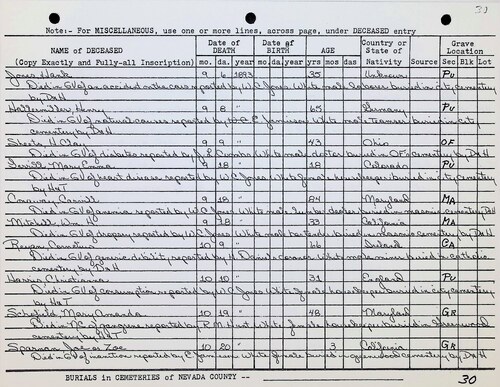 30
Note:- For MISCELLANEOUS, use one or more lines, across page, under DECEASED entry
NAME of DECEASED (Copy Exactly and Fully-all Inscription) Date of DEATH mo. da. year Date of BIRTH mo. da. year AGE yrs mos das Country or State of Nativity Source Grave Location Sec Blk Lot
Jones, Hank 9 6 1893 35 Unknown PU
Died in GV of an accident on the cars reported by W C Jones White male laborer buried in city cemetery
by D&H
Henry 9 8 " 65 Germany PU
Died in GV of natural causes reported by C Jamison White male teamster buried in city
cemetery by D&H
H Clay 9 9 " 43 Ohio OF
Died in GV of diabetes reported by J. L. Combs White male doctor buried in OF's cemetery by D&H
Mary Emma 9 18 " 18 Colorado PU
Died in GV of heart disease reported by W C Jones White female housekeeper buried in city cemetery
by H&T
Conway 9 18 " 84 Maryland MA
Died in GV of reported by W C Jones White male lumber dealer buried in masonic cemetery D&H
Mitchell Wm 9 18 " 33 California MA
Died in GV of dropsy reported by W C Jones White male buried in masonic cemetery by D&H
Cornelius 10 9 " 66 Ireland CA
Died in GV of debility reported by H Davis coroner White male miner buried in catholic
cemetery by D&H
Harris Christianna 10 10 " 31 England PU
Died in GV of consumption reported by W C Jones White female housekeeper buried in city cemetery
by H&T
Mary Amanda 10 19 " 48 Maryland GR
Died in NC of gangrene reported by R M Hunt White female housekeeper buried in Greenwood
cemetery by
Zoe 10 20 " 3 California GR
Died in GV of reported by C Jamison White female buried in greenwood cemetery by D&H
BURIALS in CEMETERIES of NEVADA COUNTY -- 30